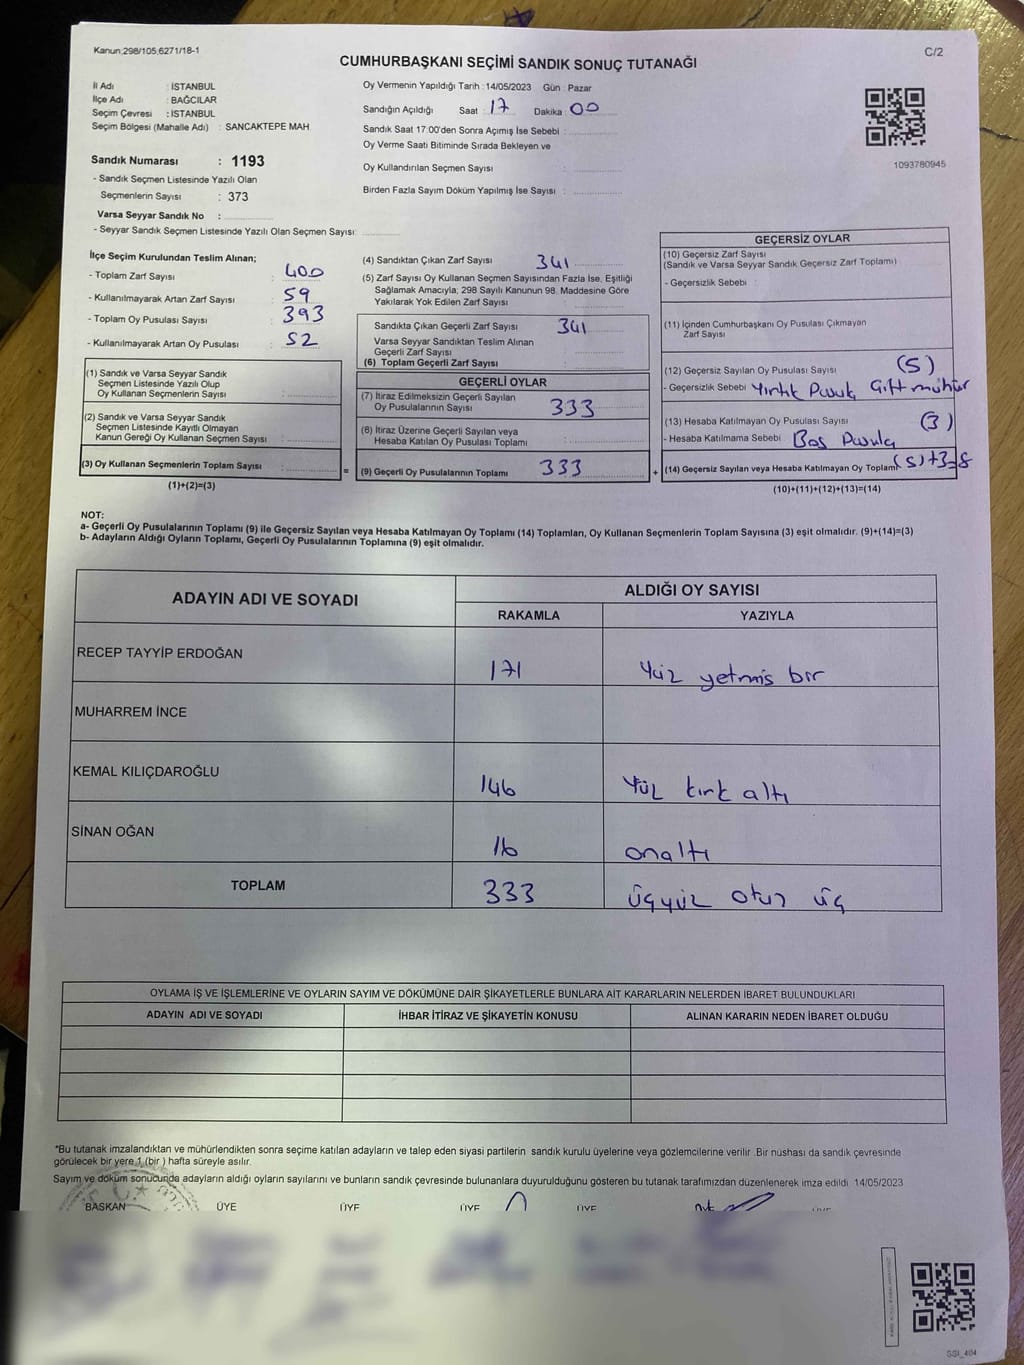 Kanun:298/105;6271/18-1
C/2
CUMHURBAŞKANI SEÇİMİ SANDIK SONUÇ TUTANAĞI
İl Adı : İSTANBUL
İlçe Adı : BAĞCILAR
Seçim Çevresi : İSTANBUL
Seçim Bölgesi (Mahalle Adı) : SANCAKTEPE MAH.
Oy Vermenin Yapıldığı Tarih : 14/05/2023 Gün : Pazar
Sandığın Açıldığı Saat : 17 Dakika : 00
Sandık Saat 17:00'den Sonra Açımış İse Sebebi :
Oy Verme Saati Bitiminde Sırada Bekleyen ve
Oy Kullandırılan Seçmen Sayısı :
Birden Fazla Sayım Döküm Yapılmış İse Sayısı :
1093780945
Sandık Numarası : 1193
- Sandık Seçmen Listesinde Yazılı Olan
Seçmenlerin Sayısı : 373
Varsa Seyyar Sandık No :
- Seyyar Sandık Seçmen Listesinde Yazılı Olan Seçmen Sayısı:
İlçe Seçim Kurulundan Teslim Alınan;
- Toplam Zarf Sayısı : 400
- Kullanılmayarak Artan Zarf Sayısı : 59
- Toplam Oy Pusulası Sayısı : 393
- Kullanılmayarak Artan Oy Pusulası : 52
(1) Sandık ve Varsa Seyyar Sandık
Seçmen Listesinde Yazılı Olup
Oy Kullanan Seçmenlerin Sayısı :
(2) Sandık ve Varsa Seyyar Sandık
Seçmen Listesinde Kayıtlı Olmayan
Kanun Gereği Oy Kullanan Seçmen Sayısı :
(3) Oy Kullanan Seçmenlerin Toplam Sayısı :
(1)+(2)=(3)
(4) Sandıktan Çıkan Zarf Sayısı : 341
(5) Zarf Sayısı Oy Kullanan Seçmen Sayısından Fazla İse, Eşitliği
Sağlamak Amacıyla; 298 Sayılı Kanunun 98. Maddesine Göre
Yakılarak Yok Edilen Zarf Sayısı :
Sandıkta Çıkan Geçerli Zarf Sayısı : 341
Varsa Seyyar Sandıktan Teslim Alınan
Geçerli Zarf Sayısı :
(6) Toplam Geçerli Zarf Sayısı :
GEÇERLİ OYLAR
(7) İtiraz Edilmeksizin Geçerli Sayılan
Oy Pusulalarının Sayısı : 333
(8) İtiraz Üzerine Geçerli Sayılan veya
Hesaba Katılan Oy Pusulası Toplamı :
= (9) Geçerli Oy Pusulalarının Toplamı : 333 +
GEÇERSİZ OYLAR
(10) Geçersiz Zarf Sayısı :
(Sandık ve Varsa Seyyar Sandık Geçersiz Zarf Toplamı)
- Geçersizlik Sebebi :
(11) İçinden Cumhurbaşkanı Oy Pusulası Çıkmayan
Zarf Sayısı :
(12) Geçersiz Sayılan Oy Pusulası Sayısı : (5)
- Geçersizlik Sebebi : Yırtık Pusula Çift mühür
(13) Hesaba Katılmayan Oy Pusulası Sayısı : (3)
- Hesaba Katılmama Sebebi : Boş Pusula
(14) Geçersiz Sayılan veya Hesaba Katılmayan Oy Toplamı (5)+3=8
(10)+(11)+(12)+(13)=(14)
NOT:
a- Geçerli Oy Pusulalarının Toplamı (9) ile Geçersiz Sayılan veya Hesaba Katılmayan Oy Toplamı (14) Toplamları, Oy Kullanan Seçmenlerin Toplam Sayısına (3) eşit olmalıdır. (9)+(14)=(3)
b- Adayların Aldığı Oyların Toplamı, Geçerli Oy Pusulalarının Toplamına (9) eşit olmalıdır.
ADAYIN ADI VE SOYADI
ALDIĞI OY SAYISI
RAKAMLA YAZIYLA
RECEP TAYYİP ERDOĞAN 171 Yüz yetmiş bir
MUHARREM İNCE
KEMAL KILIÇDAROĞLU 146 Yüz kırk altı
SİNAN OĞAN 16 onaltı
TOPLAM 333 üçyüz otuz üç
OYLAMA İŞ VE İŞLEMLERİNE VE OYLARIN SAYIM VE DÖKÜMÜNE DAİR ŞİKAYETLERLE BUNLARA AİT KARARLARIN NELERDEN İBARET BULUNDUKLARI
ADAYIN ADI VE SOYADI İHBAR İTİRAZ VE ŞİKAYETİN KONUSU ALINAN KARARIN NEDEN İBARET OLDUĞU
*Bu tutanak imzalandıktan ve mühürlendikten sonra seçime katılan adayların ve talep eden siyasi partilerin sandık kurulu üyelerine veya gözlemcilerine verilir. Bir nüshası da sandık çevresinde
görülecek bir yere 1 (bir) hafta süreyle asılır.
Sayım ve döküm sonucunda adayların aldığı oyların sayılarını ve bunların sandık çevresinde bulunanlara duyurulduğunu gösteren bu tutanak tarafımızdan düzenlenerek imza edildi. 14/05/2023
BAŞKAN ÜYE ÜYE ÜYE ÜYE
SSI_404